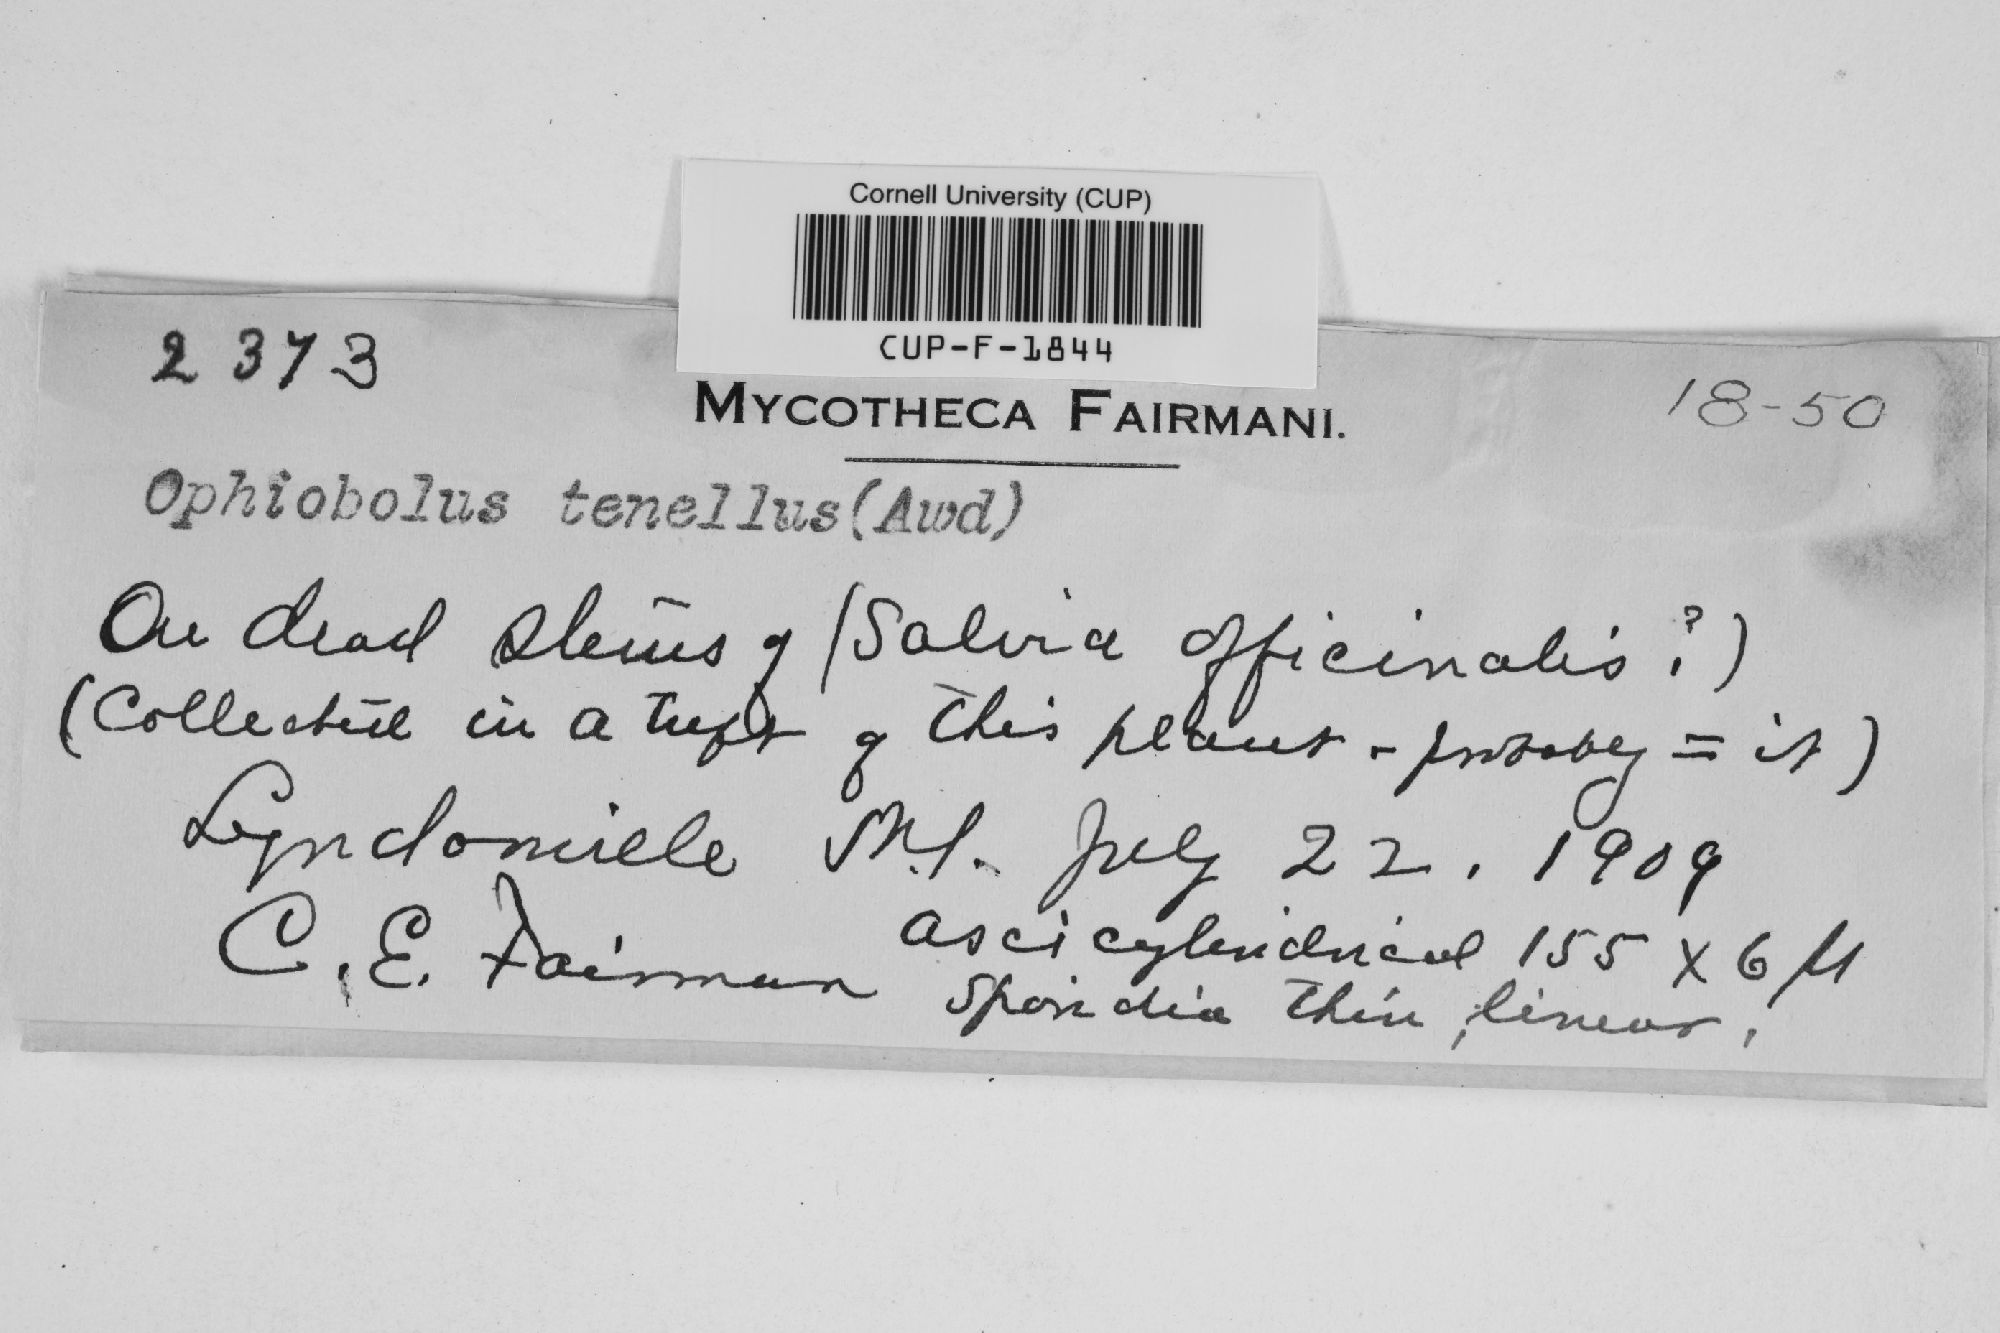 Cornell University (CUP)
CUP-F-1844
2373
MYCOTHECA FAIRMANI.
18-50
Ophiobolus tenellus (Awd)
On dead stems of (Salvia officinalis?)
(Collected in a tuft of this plant - probably = it)
Lyndonville N.Y. July 22, 1909
C. E. Fairman
asci cylindrical 155 x 6 µ
sporidia thin, linear,